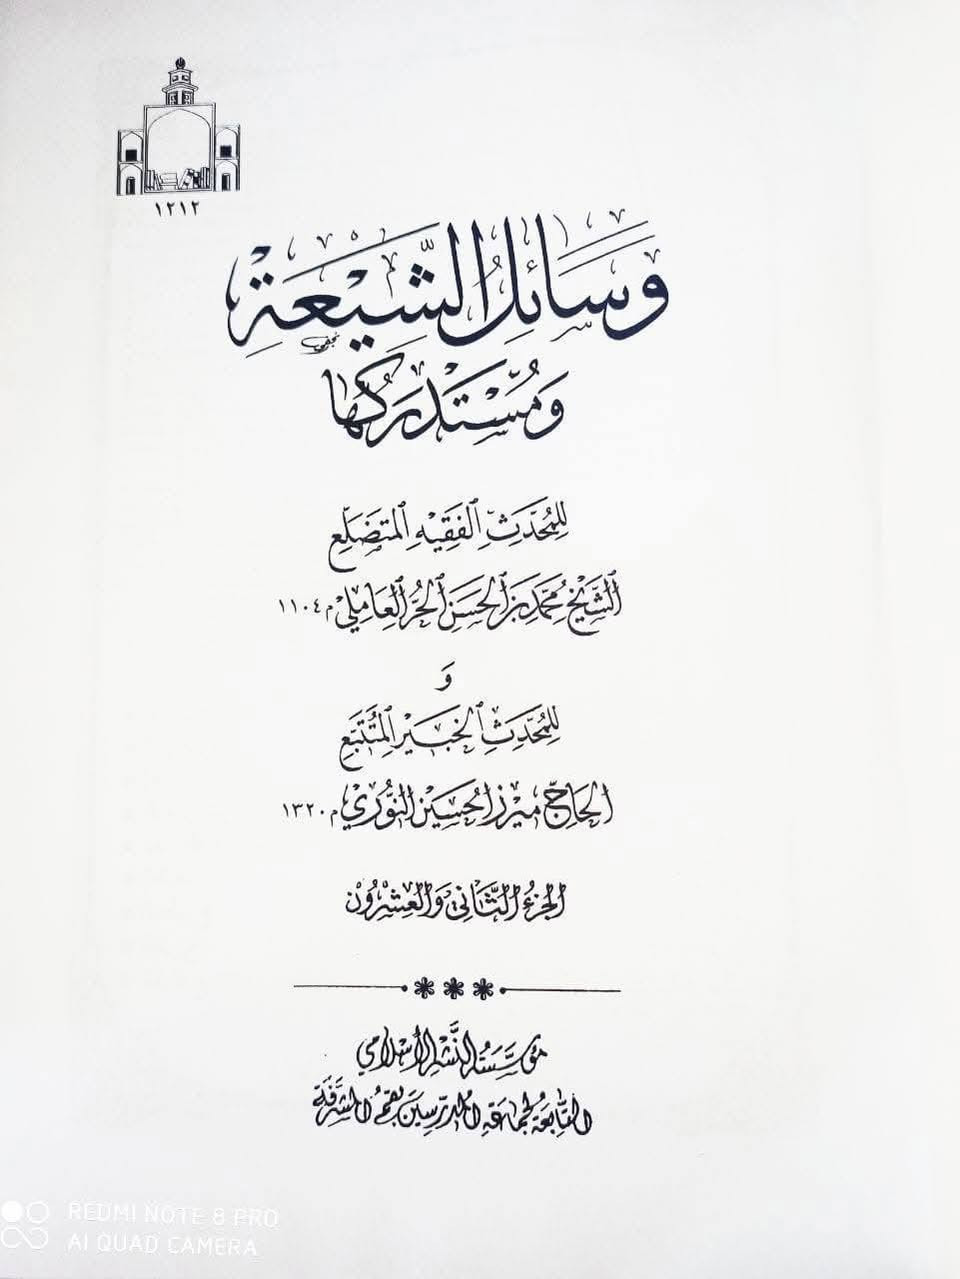 ١٢١٢
وَسَائِلُ الشِّيعَةِ
وَمُسْتَدْرَكُهَا
لِلمُحَدِّثِ الفَقِيهِ المُتَضَلِّعِ
الشَّيْخِ مُحَمَّد بْنِ الحَسَنِ الحُرِّ العَامِلِي م ١١٠٤
وَ
لِلمُحَدِّثِ الخَبِيرِ المُتَتَبِّعِ
الحَاجّ مِيرزا حُسَين النُّورِي م ١٣٢٠
الجُزءُ الثَّانِي وَالعِشْرُونَ
مؤسَّسَة النَّشر الإسْلامي
التَّابِعَة لِجَمَاعَة المُدَرِّسِينَ بِقُمِ المُشَرَّفَة
REDMI NOTE 8 PRO
AI QUAD CAMERA